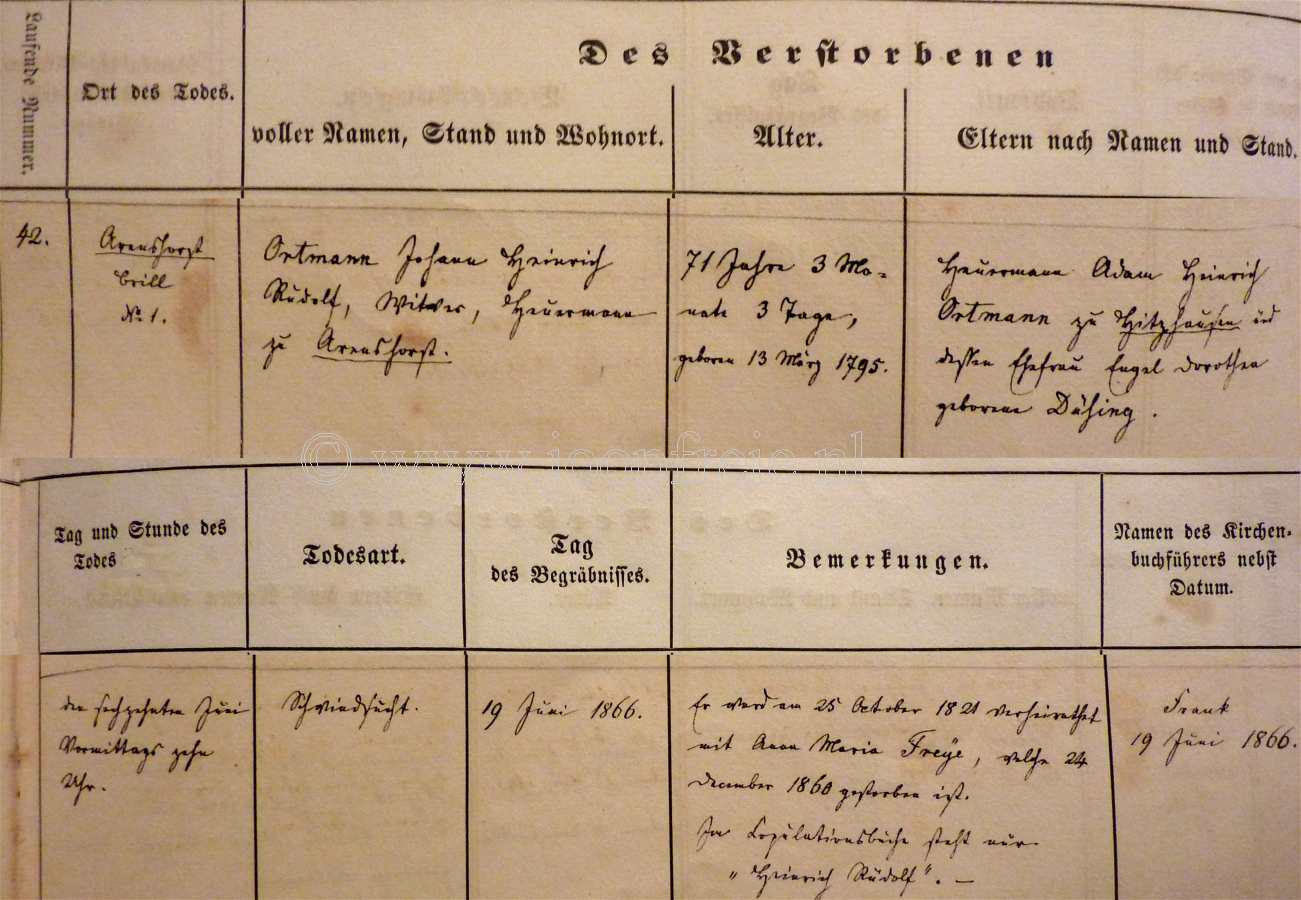 Laufende Nummer.
Ort des Todes.
Des Verstorbenen
voller Namen, Stand und Wohnort.
Alter.
Eltern nach Namen und Stand.
42.
Arenshorst
Brill
No 1.
Ortmann Johann Heinrich
Rudolf, Witwer, Heuermann
zu Arenshorst.
71 Jahre 3 Mo-
nate 3 Tage,
geboren 13 März 1795.
Heuermann Adam Heinrich
Ortmann zu Hitzhausen und
dessen Ehefrau Engel Dorothea
geborene Dühing.
© www.jeenfreie.nl
Tag und Stunde des
Todes
Todesart.
Tag
des Begräbnisses.
Bemerkungen.
Namen des Kirchen-
buchführers nebst
Datum.
den sechzehnten Juni
Vormittags zehn
Uhr.
Schwindsucht.
19 Juni 1866.
Er ward am 25 October 1821 verheirathet
mit Anna Maria Freye, welche 24
December 1860 gestorben ist.
Im Copulationsbuche steht nur
„Heinrich Rudolf“. —
Frank
19 Juni 1866.